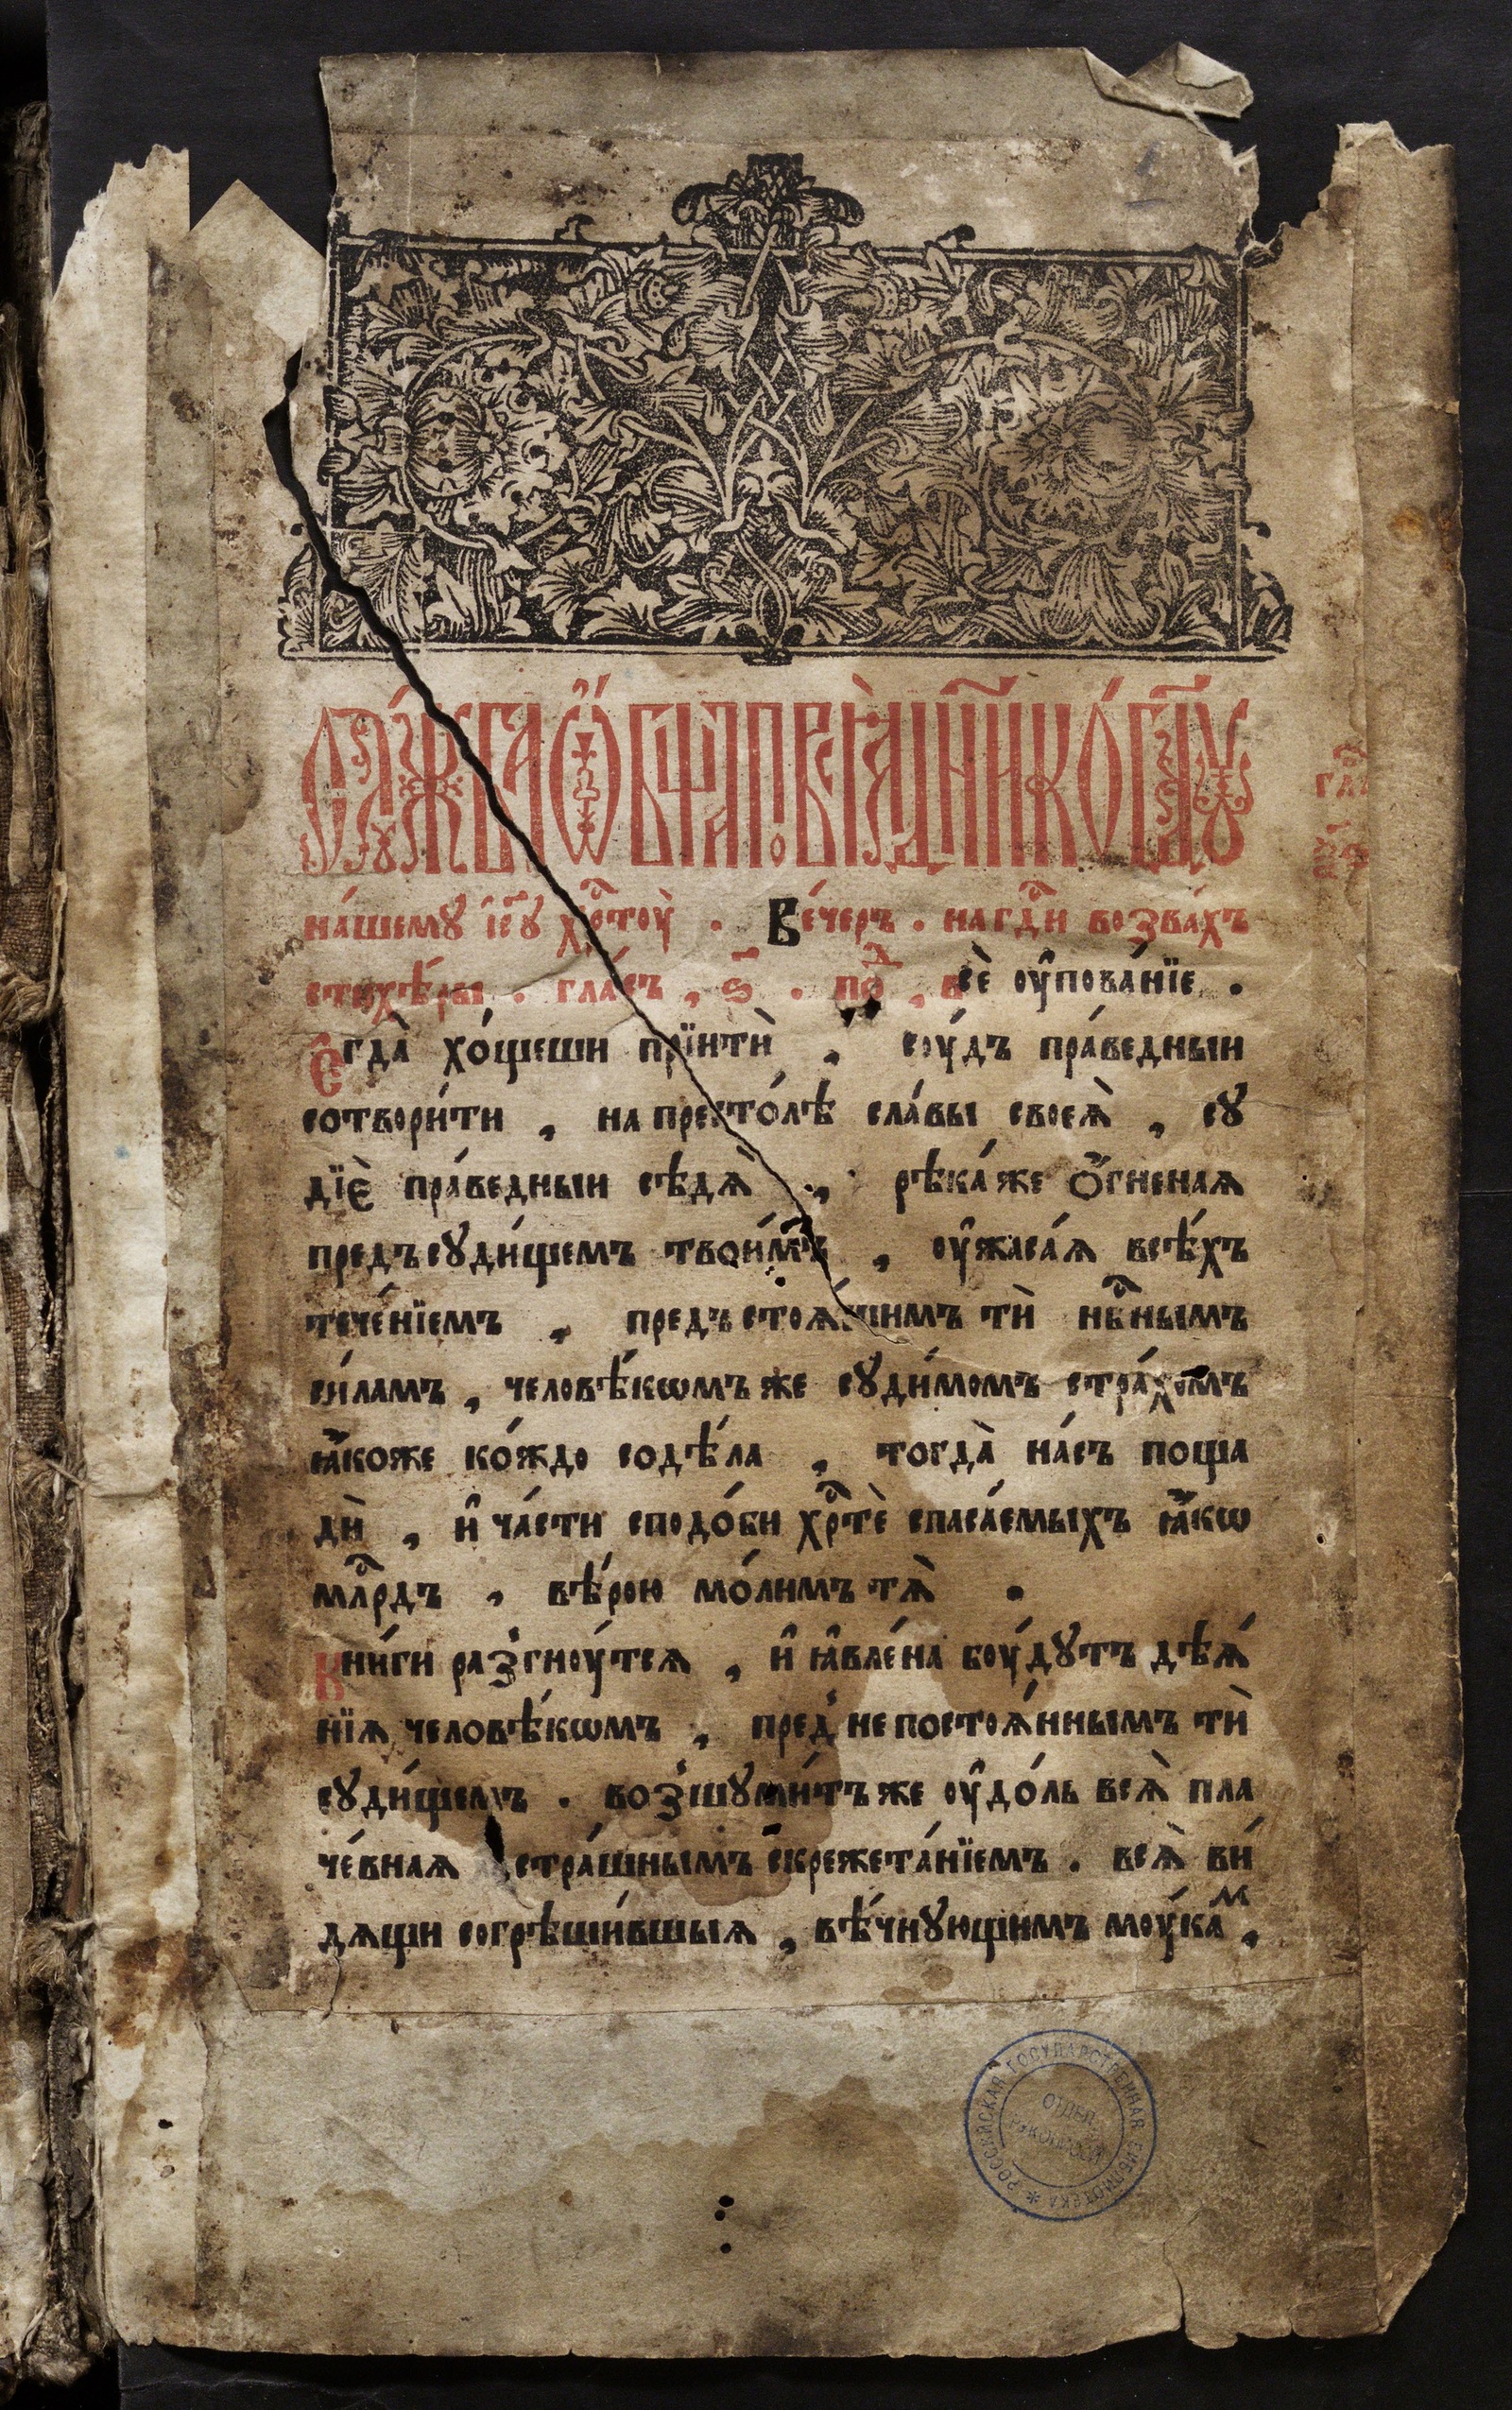 на́шемꙋ і҆и҃сꙋ хрⷭ҇тоу̀ . Ве́черъ . на гдⷭ҇и возва́хъ
стихѣ́ры . гла́съ , ѕ҃ . поⷣ , всѐ ѹ҆пова́нїе .
Є҆гда̀ хо́щеши прїитѝ , соу́дъ пра́ведныи
сотвори́ти , на престо́лѣ сла́вы своеѧ̀ , сꙋ
дїѐ пра́ведныи сѣдѧ̀ , рѣка́ же ѻ҆́гненаѧ
предъ сꙋди́щемъ твои́мъ , ѹ҆жаса́ѧ всѣ́хъ
тече́нїемъ , предъстоѧ́щимъ тѝ нбⷭ҇нымъ
си́ламъ , человѣ́кѡмъ же сꙋди́момъ стра́хомъ
ꙗ҆́коже ко́ждо содѣ́ла , тогда̀ на́съ поща
дѝ , и҆ ча́сти сподо́би хрⷭ҇тѐ спаса́емыхъ ꙗ҆́кѡ
млⷭ҇рдъ , вѣ́рою мо́лимъ тѧ̀ .
Кни́ги разгноу́тсѧ , и҆ ꙗ҆вле́на боу́дꙋтъ дѣѧ́
нїѧ человѣ́кѡмъ , пред̾ непостоѧ́ннымъ тѝ
сꙋди́щемъ . воз̾шꙋми́тъ же ѹ҆до́ль всѧ̀ пла
че́внаѧ стра́шнымъ скрежета́нїемъ . всѧ̀ ви́
дѧщи согрѣши́вшыѧ , вѣ́чнꙋющимъ моу́каⷨ ,
РОССИЙСКАЯ ГОСУДАРСТВЕННАЯ БИБЛИОТЕКА *
ОТДЕЛ
РУКОПИСЕЙ